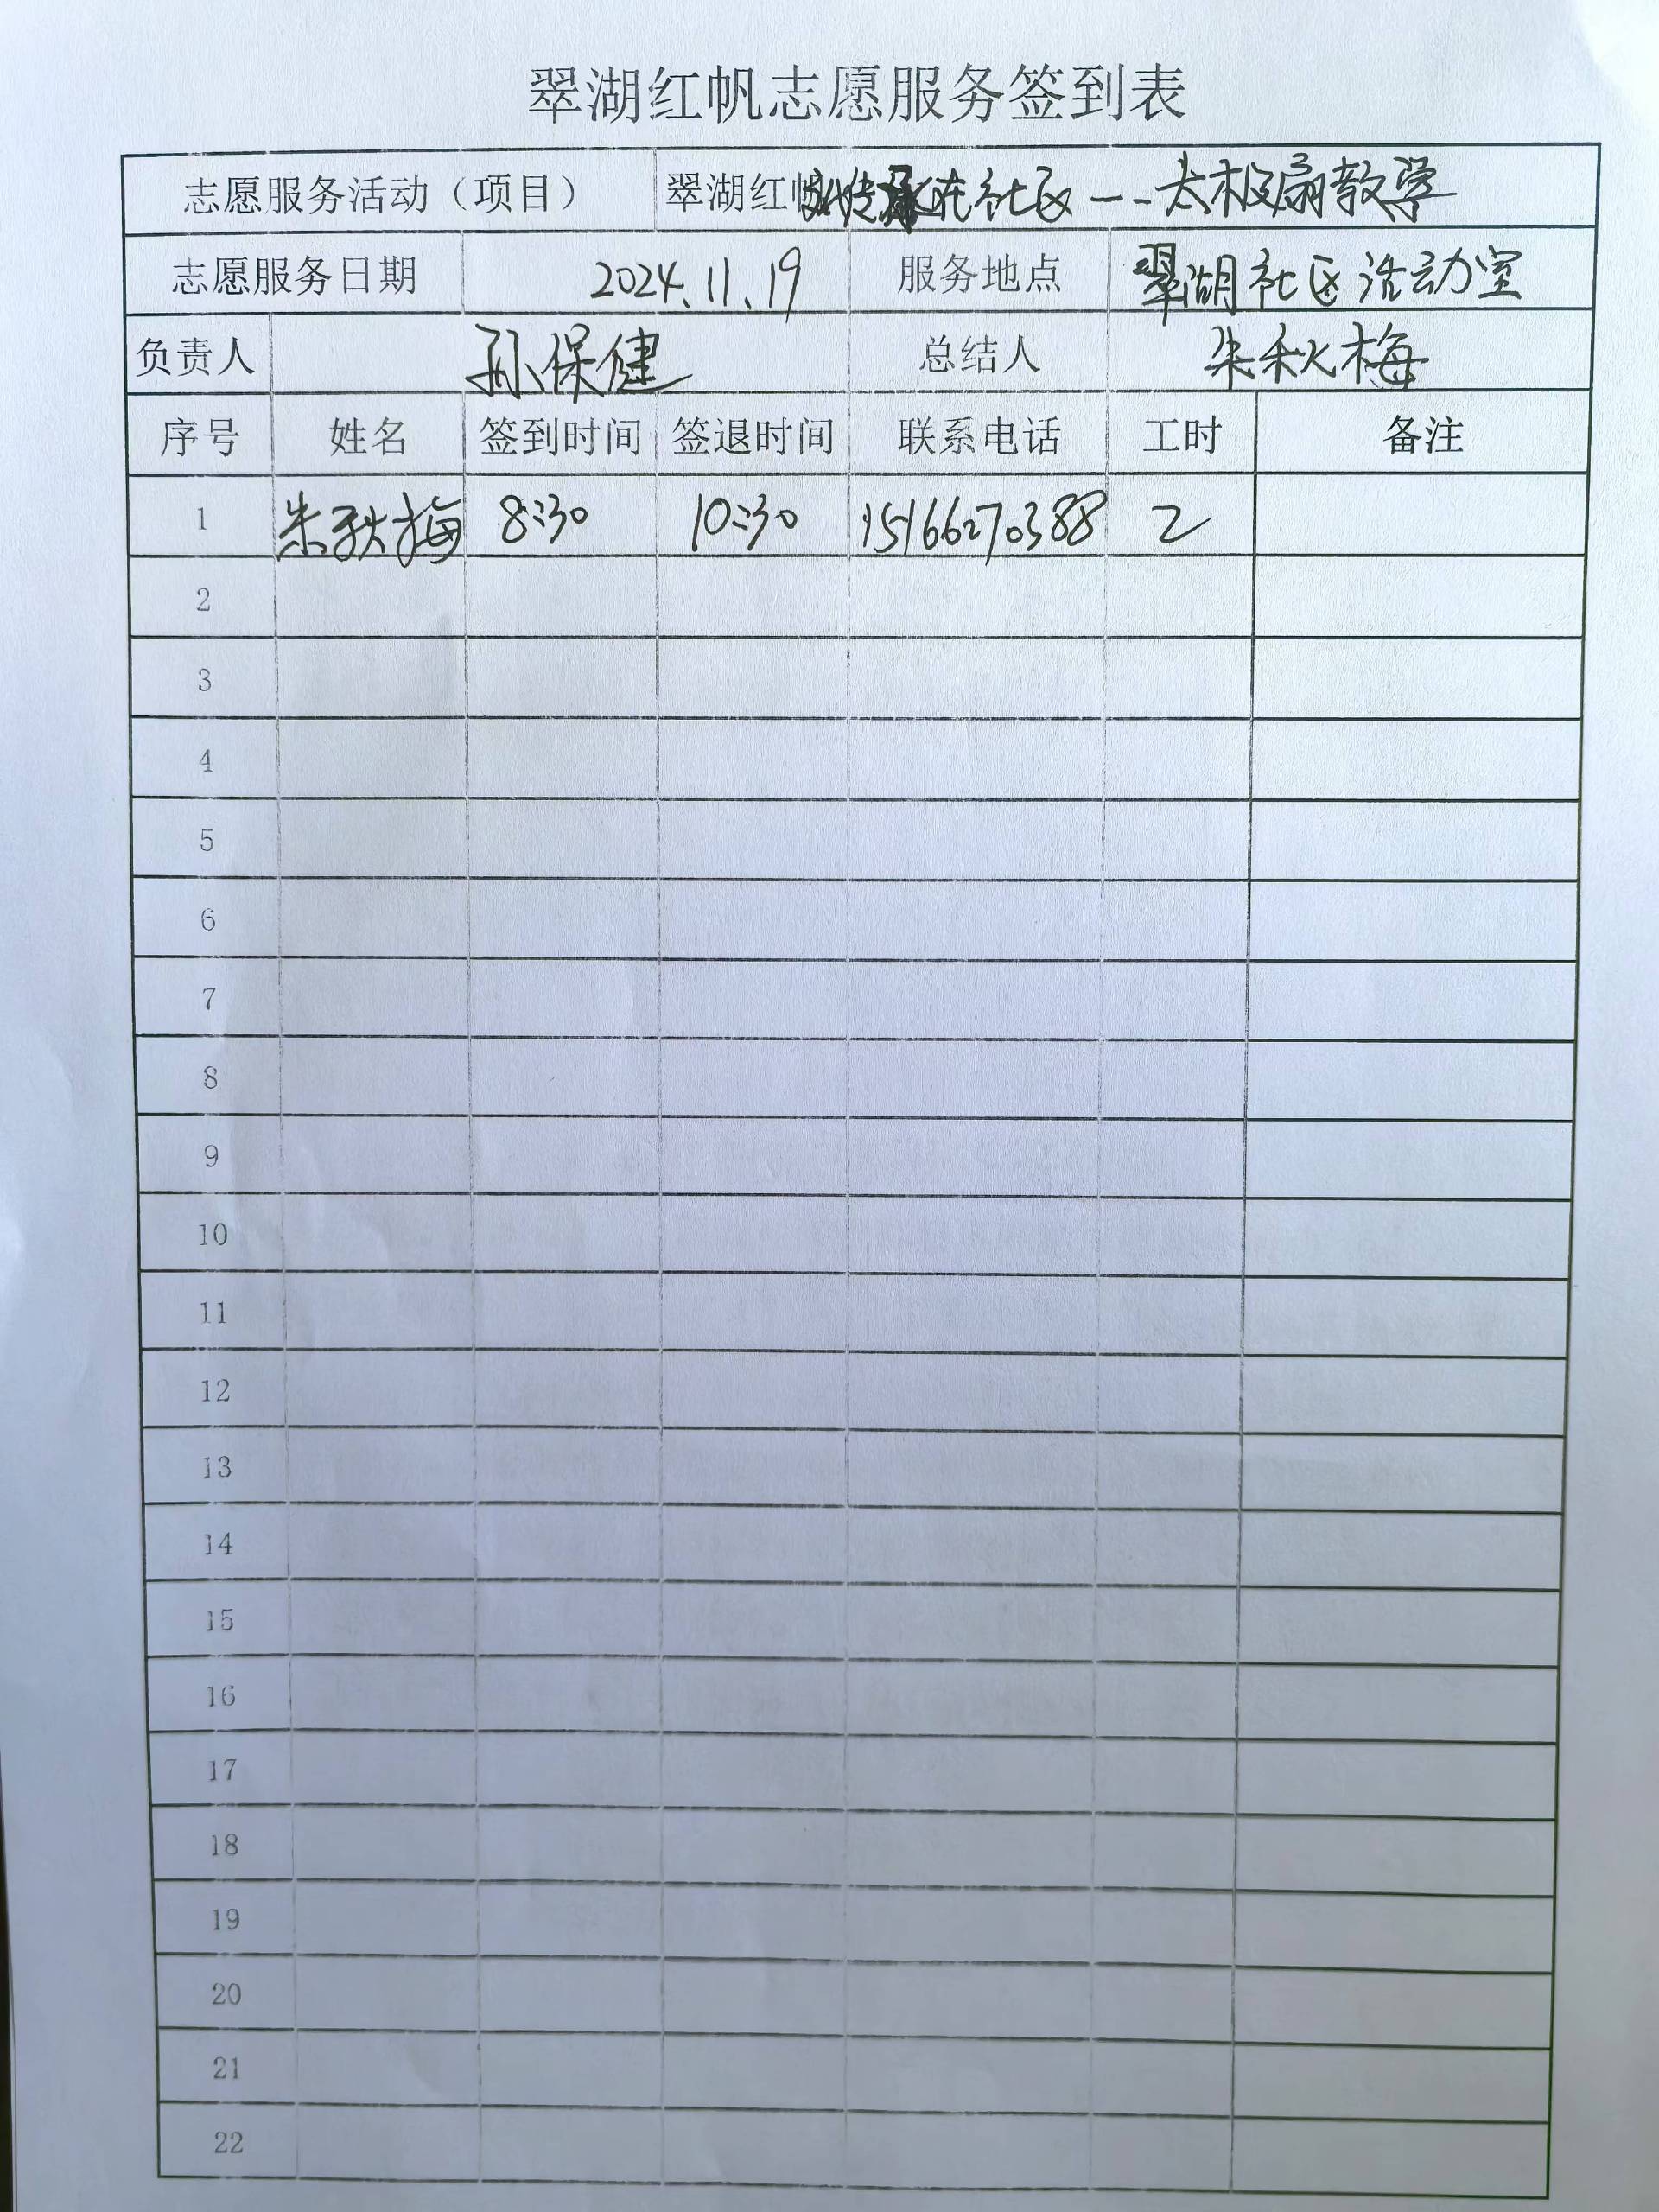 翠湖红帆志愿服务签到表
志愿服务活动（项目） 翠湖红帆 传承在社区--太极扇教学
志愿服务日期 2024.11.19 服务地点 翠湖社区活动室
负责人 孙保健 总结人 朱秋梅
序号 姓名 签到时间 签退时间 联系电话 工时 备注
1 朱秋梅 8:30 10:30 15166270388 2
2
3
4
5
6
7
8
9
10
11
12
13
14
15
16
17
18
19
20
21
22